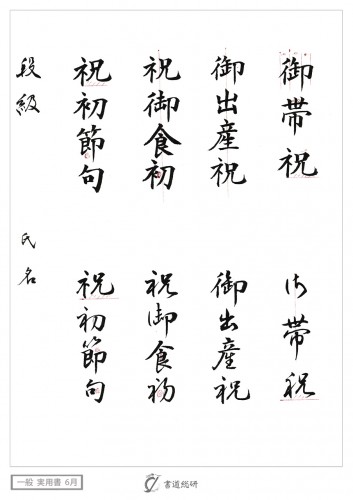 御帯祝
御出産祝
祝御食初
祝初節句
御帯祝
御出産祝
祝御食初
祝初節句
段級
氏名
一般 実用書 6月
書道総研